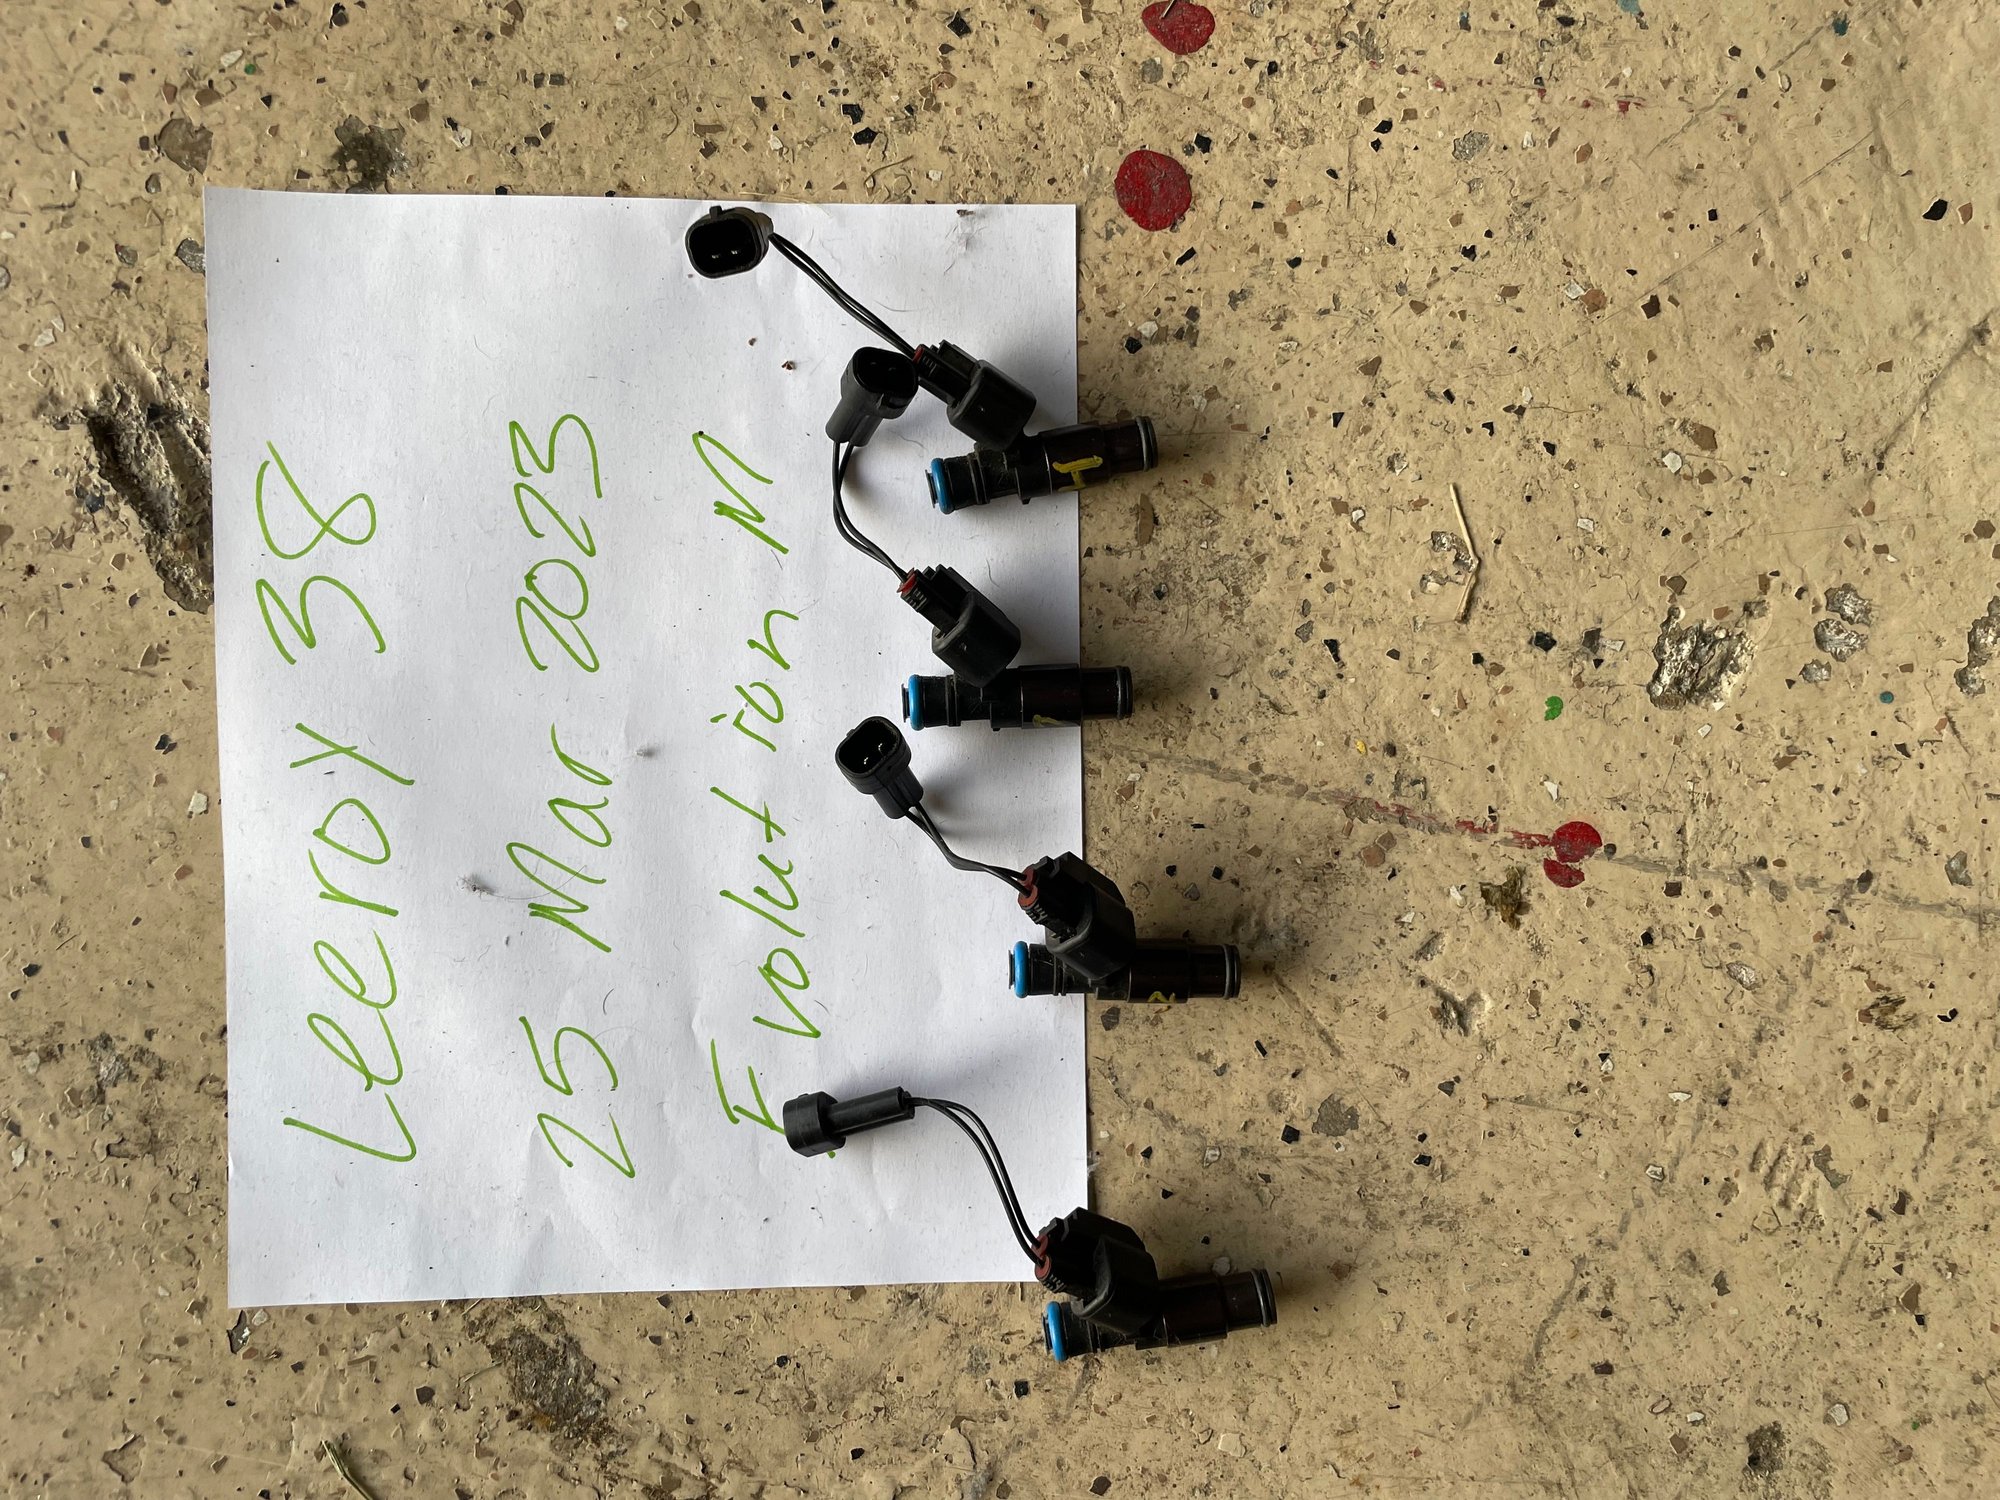 Leeroy 38
25 Mar 2023
Evolution M